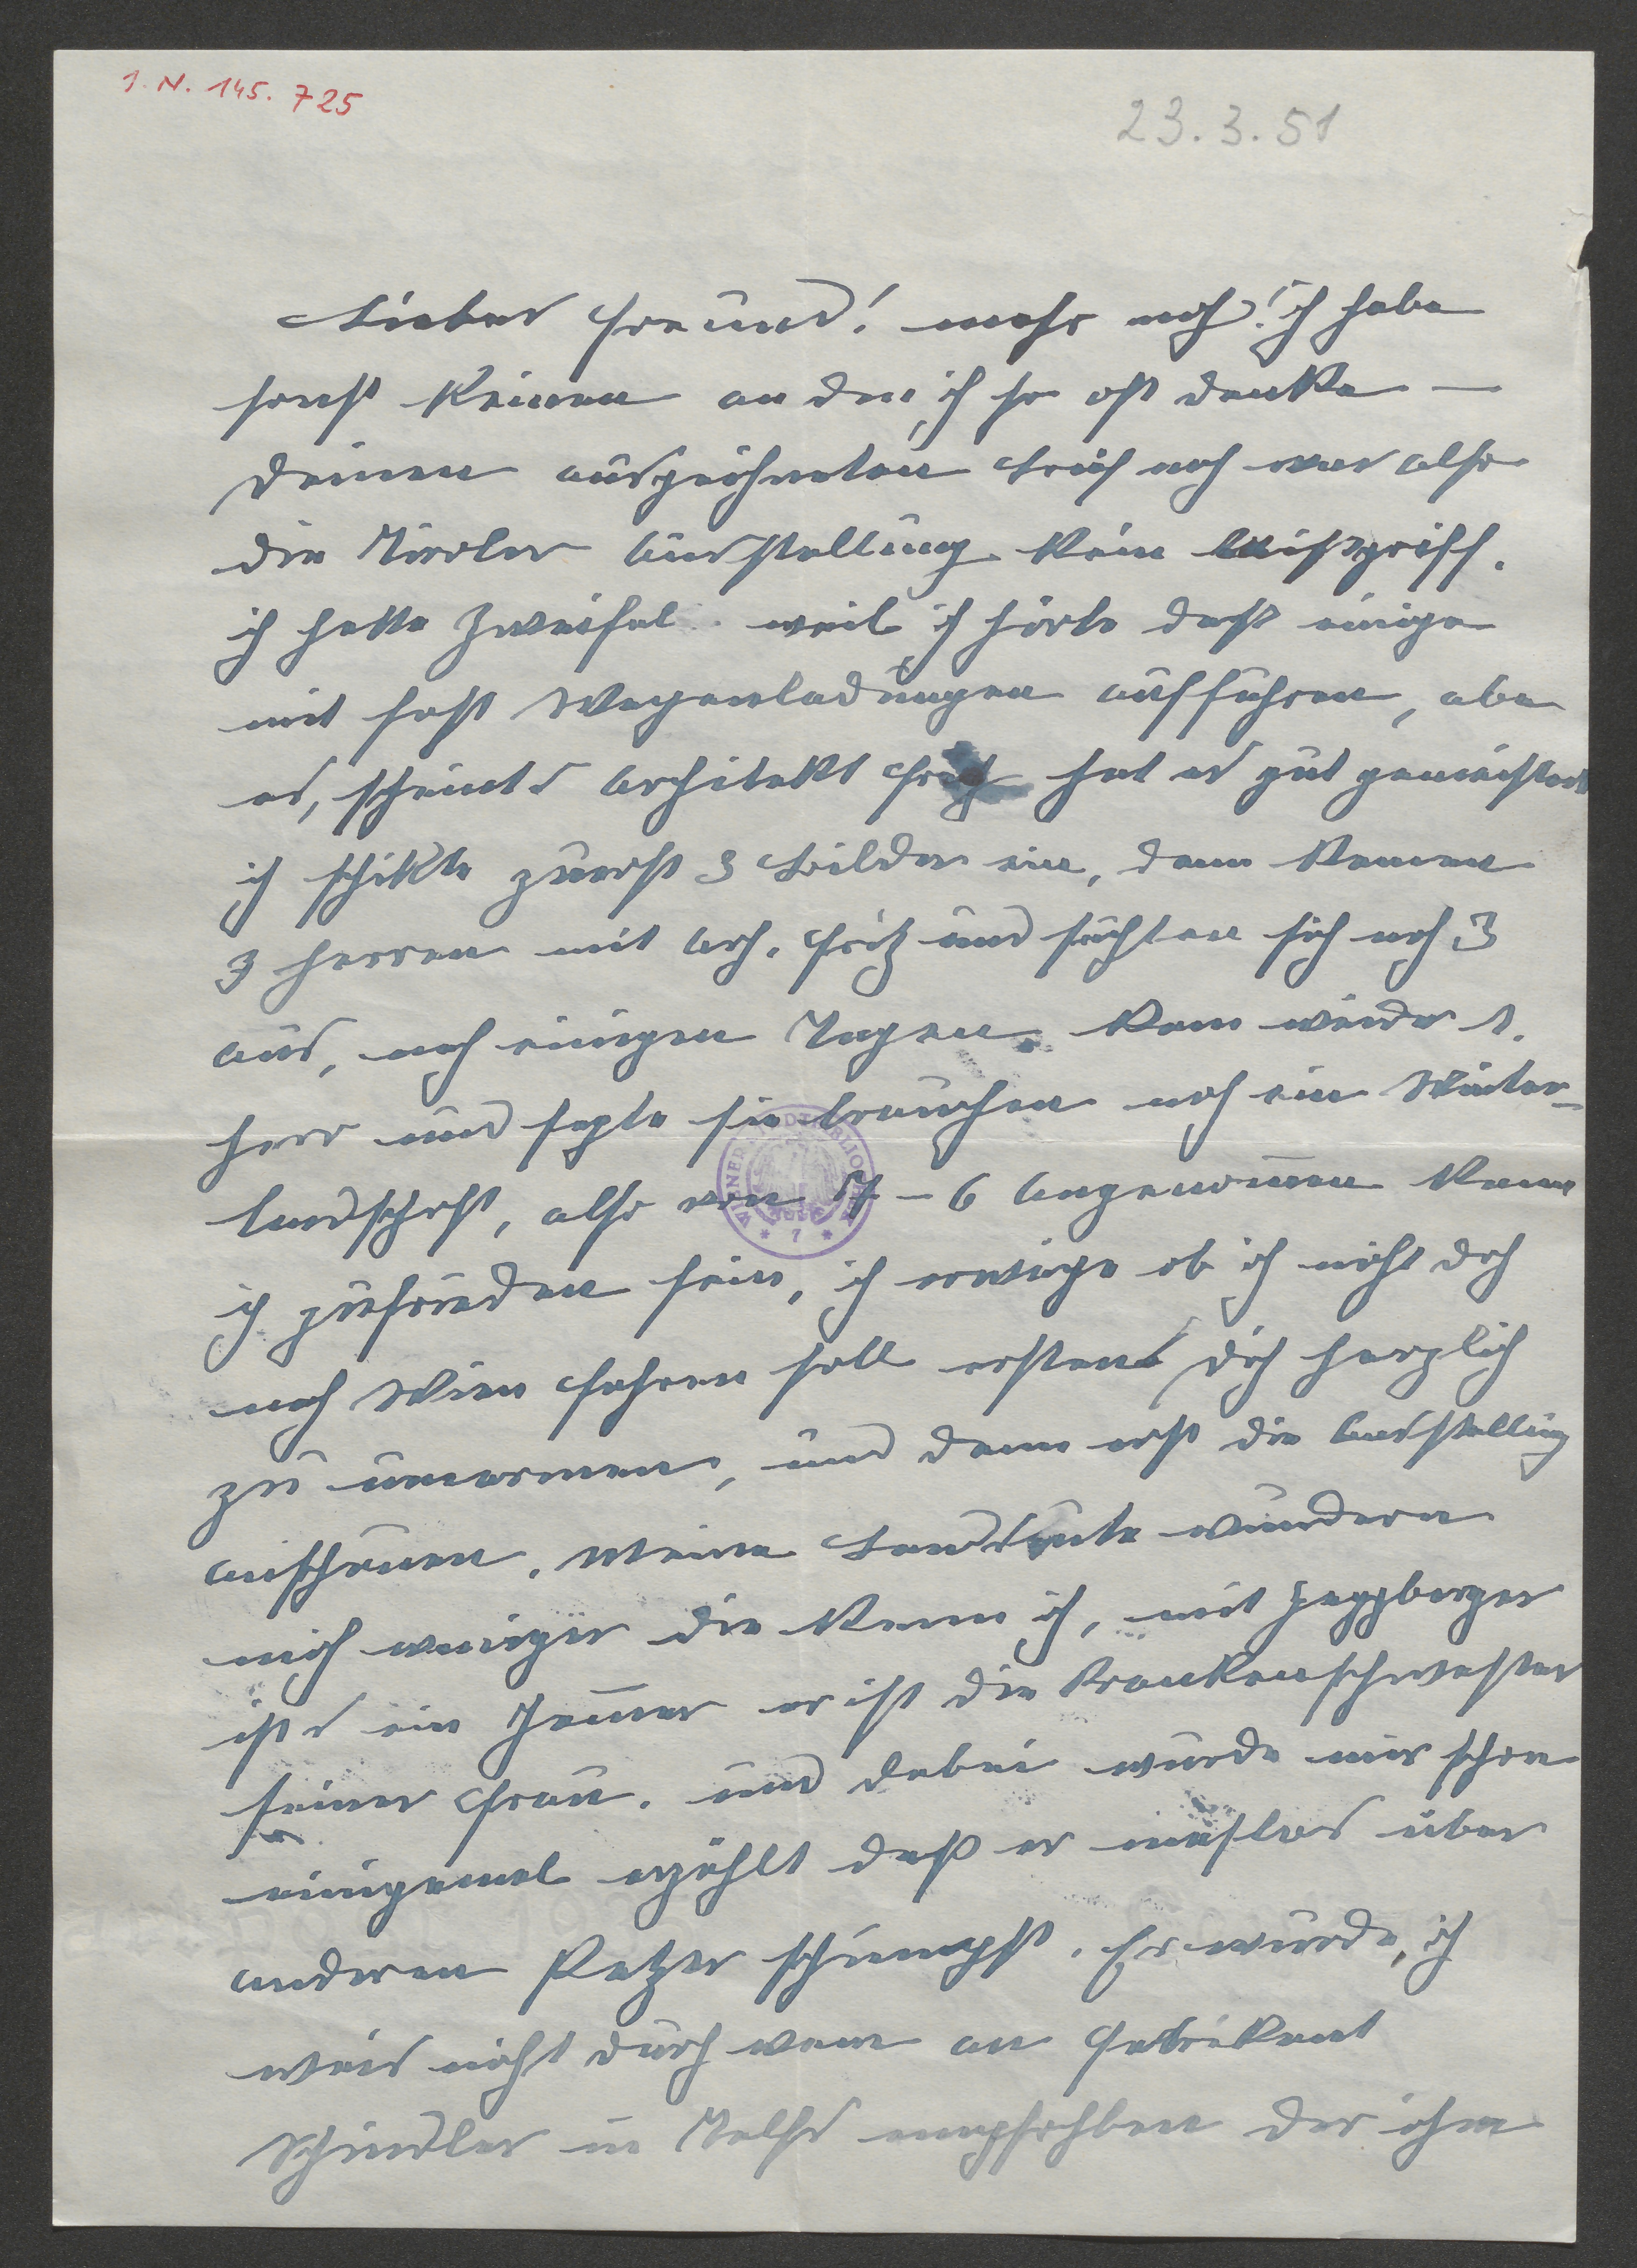 I.N. 145.725
23.3.51
Lieber Freund! mehr noch! ich habe
sonst keinen an den ich so oft denke —
deinen ausgezeichneten Brief nach war also
die Tiroler Ausstellung kein Missgriff.
ich hatte Zweifel weil ich hörte dass einige
mit fast Wagenladungen aufführen, aber
es, scheints Architekt Fritz hat es gut gemeistert
ich schikte zuerst 3 Bilder ein, dann kamen
3 Herren mit Arch. Fritz und suchten sich noch 3
aus, nach einigen Tagen kam wieder 1.
Herr und sagte sie brauchen noch ein Winter-
landschaft, also von 7 – 6 Angenommen kann
ich zufrieden sein, ich erwäge ob ich nicht doch
nach Wien fahren soll erstens dich herzlich
zu umarmen, und dann erst die Ausstellung
anschauen. Meine Landsleute wundern
mich weniger die kenn ich, mit
ists ein Jammer er ist die Krankenschwester
seiner Frau. und dabei wurde mir schon
einigemal erzählt daß er masslos über
anderen Patzer schimpft. Er wurde, ich
weis nicht durch wem an Fabrikant
Schindler in Telfs empfohlen der ihm
WIENER STADTBIBLIOTHEK
* 7 *